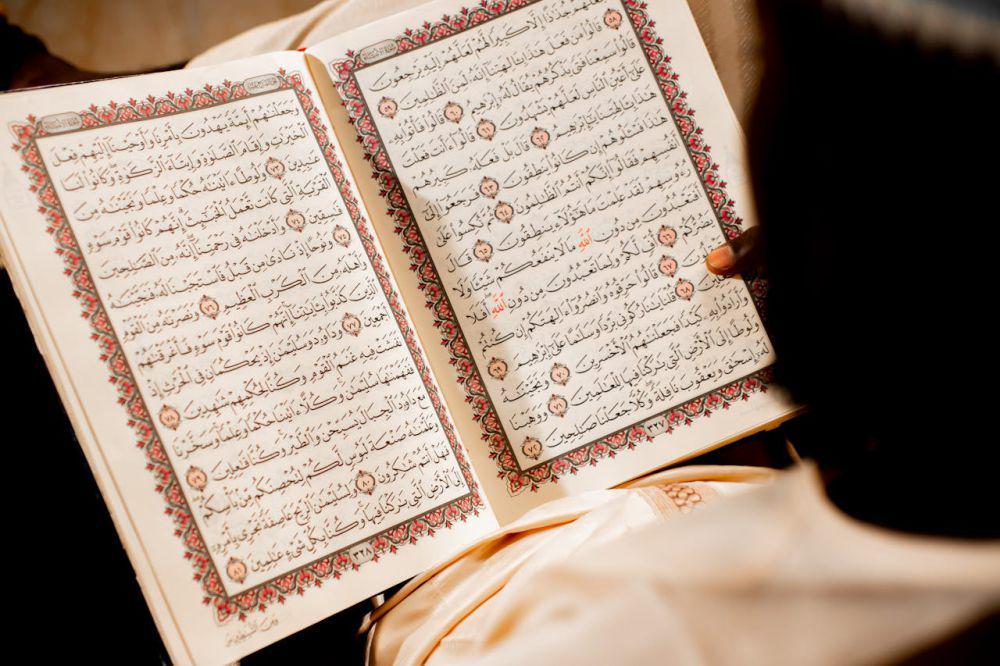 فَجَعَلَهُمْ جُذَٰذًا إِلَّا كَبِيرًا لَّهُمْ لَعَلَّهُمْ إِلَيْهِ يَرْجِعُونَ
٥٨ قَالُوا۟ مَن فَعَلَ هَٰذَا بِـَٔالِهَتِنَآ إِنَّهُۥ لَمِنَ ٱلظَّٰلِمِينَ ٥٩
قَالُوا۟ سَمِعْنَا فَتًى يَذْكُرُهُمْ يُقَالُ لَهُۥٓ إِبْرَٰهِيمُ ٦٠ قَالُوا۟ فَأْتُوا۟ بِهِۦ
عَلَىٰٓ أَعْيُنِ ٱلنَّاسِ لَعَلَّهُمْ يَشْهَدُونَ ٦١ قَالُوٓا۟ ءَأَنتَ فَعَلْتَ
هَٰذَا بِـَٔالِهَتِنَا يَٰٓإِبْرَٰهِيمُ ٦٢ قَالَ بَلْ فَعَلَهُۥ كَبِيرُهُمْ
هَٰذَا فَسْـَٔلُوهُمْ إِن كَانُوا۟ يَنطِقُونَ ٦٣ فَرَجَعُوٓا۟ إِلَىٰٓ
أَنفُسِهِمْ فَقَالُوٓا۟ إِنَّكُمْ أَنتُمُ ٱلظَّٰلِمُونَ ٦٤ ثُمَّ نُكِسُوا۟ عَلَىٰ
رُءُوسِهِمْ لَقَدْ عَلِمْتَ مَا هَٰٓؤُلَآءِ يَنطِقُونَ ٦٥ قَالَ
أَفَتَعْبُدُونَ مِن دُونِ ٱللَّهِ مَا لَا يَنفَعُكُمْ شَيْـًٔا وَلَا
يَضُرُّكُمْ ٦٦ أُفٍّ لَّكُمْ وَلِمَا تَعْبُدُونَ مِن دُونِ ٱللَّهِ أَفَلَا
٦٧ قَالُوا۟ حَرِّقُوهُ وَٱنصُرُوٓا۟ ءَالِهَتَكُمْ إِن كُنتُمْ
٦٨ قُلْنَا يَٰنَارُ كُونِى بَرْدًا وَسَلَٰمًا عَلَىٰٓ إِبْرَٰهِيمَ ٦٩
وَأَرَادُوا۟ بِهِۦ كَيْدًا فَجَعَلْنَٰهُمُ ٱلْأَخْسَرِينَ ٧٠ وَنَجَّيْنَٰهُ
وَلُوطًا إِلَى ٱلْأَرْضِ ٱلَّتِى بَٰرَكْنَا فِيهَا لِلْعَٰلَمِينَ ٧١ وَوَهَبْنَا
لَهُۥٓ إِسْحَٰقَ وَيَعْقُوبَ نَافِلَةً وَكُلًّا جَعَلْنَا صَٰلِحِينَ ٧٢
٣٢٧
وَجَعَلْنَٰهُمْ أَئِمَّةً يَهْدُونَ بِأَمْرِنَا وَأَوْحَيْنَآ إِلَيْهِمْ فِعْلَ
ٱلْخَيْرَٰتِ وَإِقَامَ ٱلصَّلَوٰةِ وَإِيتَآءَ ٱلزَّكَوٰةِ وَكَانُوا۟ لَنَا
عَٰبِدِينَ ٧٣ وَلُوطًا ءَاتَيْنَٰهُ حُكْمًا وَعِلْمًا وَنَجَّيْنَٰهُ مِنَ
ٱلْقَرْيَةِ ٱلَّتِى كَانَت تَّعْمَلُ ٱلْخَبَٰٓئِثَ إِنَّهُمْ كَانُوا۟ قَوْمَ سَوْءٍ
فَٰسِقِينَ ٧٤ وَأَدْخَلْنَٰهُ فِى رَحْمَتِنَآ إِنَّهُۥ مِنَ ٱلصَّٰلِحِينَ
٧٥ وَنُوحًا إِذْ نَادَىٰ مِن قَبْلُ فَٱسْتَجَبْنَا لَهُۥ فَنَجَّيْنَٰهُ
وَأَهْلَهُۥ مِنَ ٱلْكَرْبِ ٱلْعَظِيمِ ٧٦ وَنَصَرْنَٰهُ مِنَ ٱلْقَوْمِ
ٱلَّذِينَ كَذَّبُوا۟ بِـَٔايَٰتِنَآ إِنَّهُمْ كَانُوا۟ قَوْمَ سَوْءٍ فَأَغْرَقْنَٰهُمْ
أَجْمَعِينَ ٧٧ وَدَاوُۥدَ وَسُلَيْمَٰنَ إِذْ يَحْكُمَانِ فِى ٱلْحَرْثِ إِذْ
نَفَشَتْ فِيهِ غَنَمُ ٱلْقَوْمِ وَكُنَّا لِحُكْمِهِمْ شَٰهِدِينَ ٧٨
فَفَهَّمْنَٰهَا سُلَيْمَٰنَ وَكُلًّا ءَاتَيْنَا حُكْمًا وَعِلْمًا وَسَخَّرْنَا
مَعَ دَاوُۥدَ ٱلْجِبَالَ يُسَبِّحْنَ وَٱلطَّيْرَ وَكُنَّا فَٰعِلِينَ ٧٩
وَعَلَّمْنَٰهُ صَنْعَةَ لَبُوسٍ لَّكُمْ لِتُحْصِنَكُم مِّنۢ بَأْسِكُمْ
فَهَلْ أَنتُمْ شَٰكِرُونَ ٨٠ وَلِسُلَيْمَٰنَ ٱلرِّيحَ عَاصِفَةً تَجْرِى بِأَمْرِهِۦٓ
إِلَى ٱلْأَرْضِ ٱلَّتِى بَٰرَكْنَا فِيهَا وَكُنَّا بِكُلِّ شَىْءٍ عَٰلِمِينَ ٨١
٣٢٨